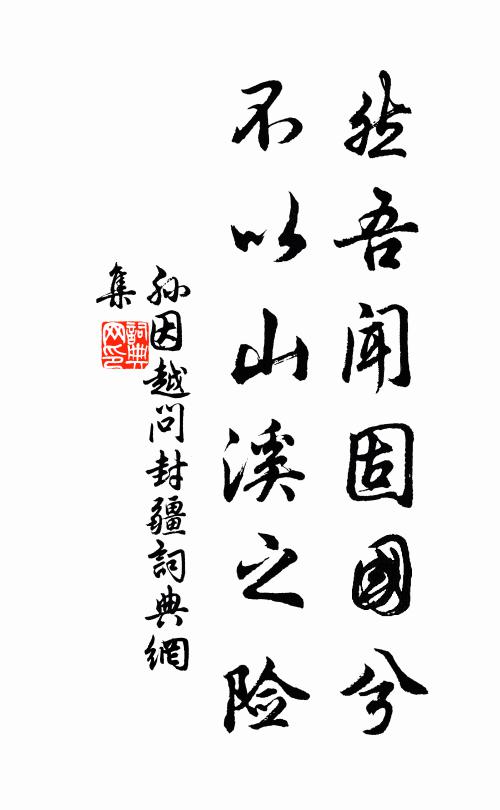 然吾闻固國兮
不以山溪之险
孙因越问封疆詞典網
集
詞典
网印